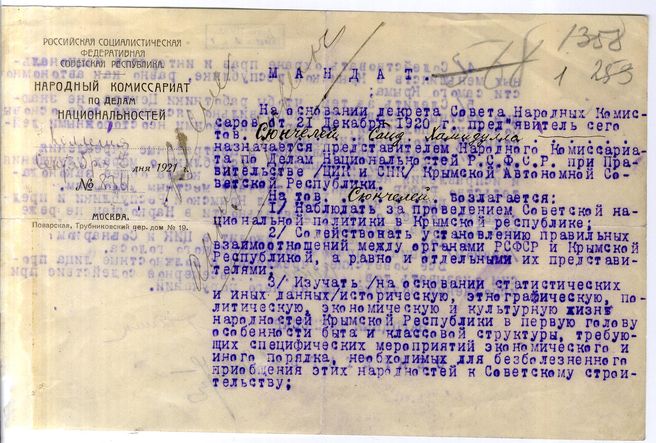 1358
1 253
РОССИЙСКАЯ СОЦИАЛИСТИЧЕСКАЯ
ФЕДЕРАТИВНАЯ
СОВЕТСКАЯ РЕСПУБЛИКА.
НАРОДНЫЙ КОМИССАРИАТ
ПО ДЕЛАМ
НАЦИОНАЛЬНОСТЕЙ
дня 1921 г.
№
МОСКВА.
Поварская, Трубниковский пер. дом № 19.
МАНДАТ.
На основании декрета Совета Народных Комис-
саров от 21 Декабря 1920 г. пред'явитель сего
тов. Сюнчелей Саид Хамидулла
назначается представителем Народного Комиссариа-
та по Делам Национальностей Р.С.Ф.С.Р. при Пра-
вительстве /ЦИК и СНК/ Крымской Автономной Со-
ветской Республики.
На тов. Сюнчелей возлагается:
1/ Наблюдать за проведением Советской на-
циональной политики в Крымской республике;
2/ Содействовать установлению правильных
взаимоотношений между органами РСФСР и Крымской
Республикой, а равно и отдельными их представи-
телями;
3/ Изучать /на основании статистических
и иных данных/историческую, этнографическую, по-
литическую, экономическую и культурную жизнь
народностей Крымской Республики в первую голову
особенности быта и классовой структуры, требую-
щих специфических мероприятий экономического и
иного порядка, необходимых для безболезненного
приобщения этих народностей к Советскому строи-
тельству;